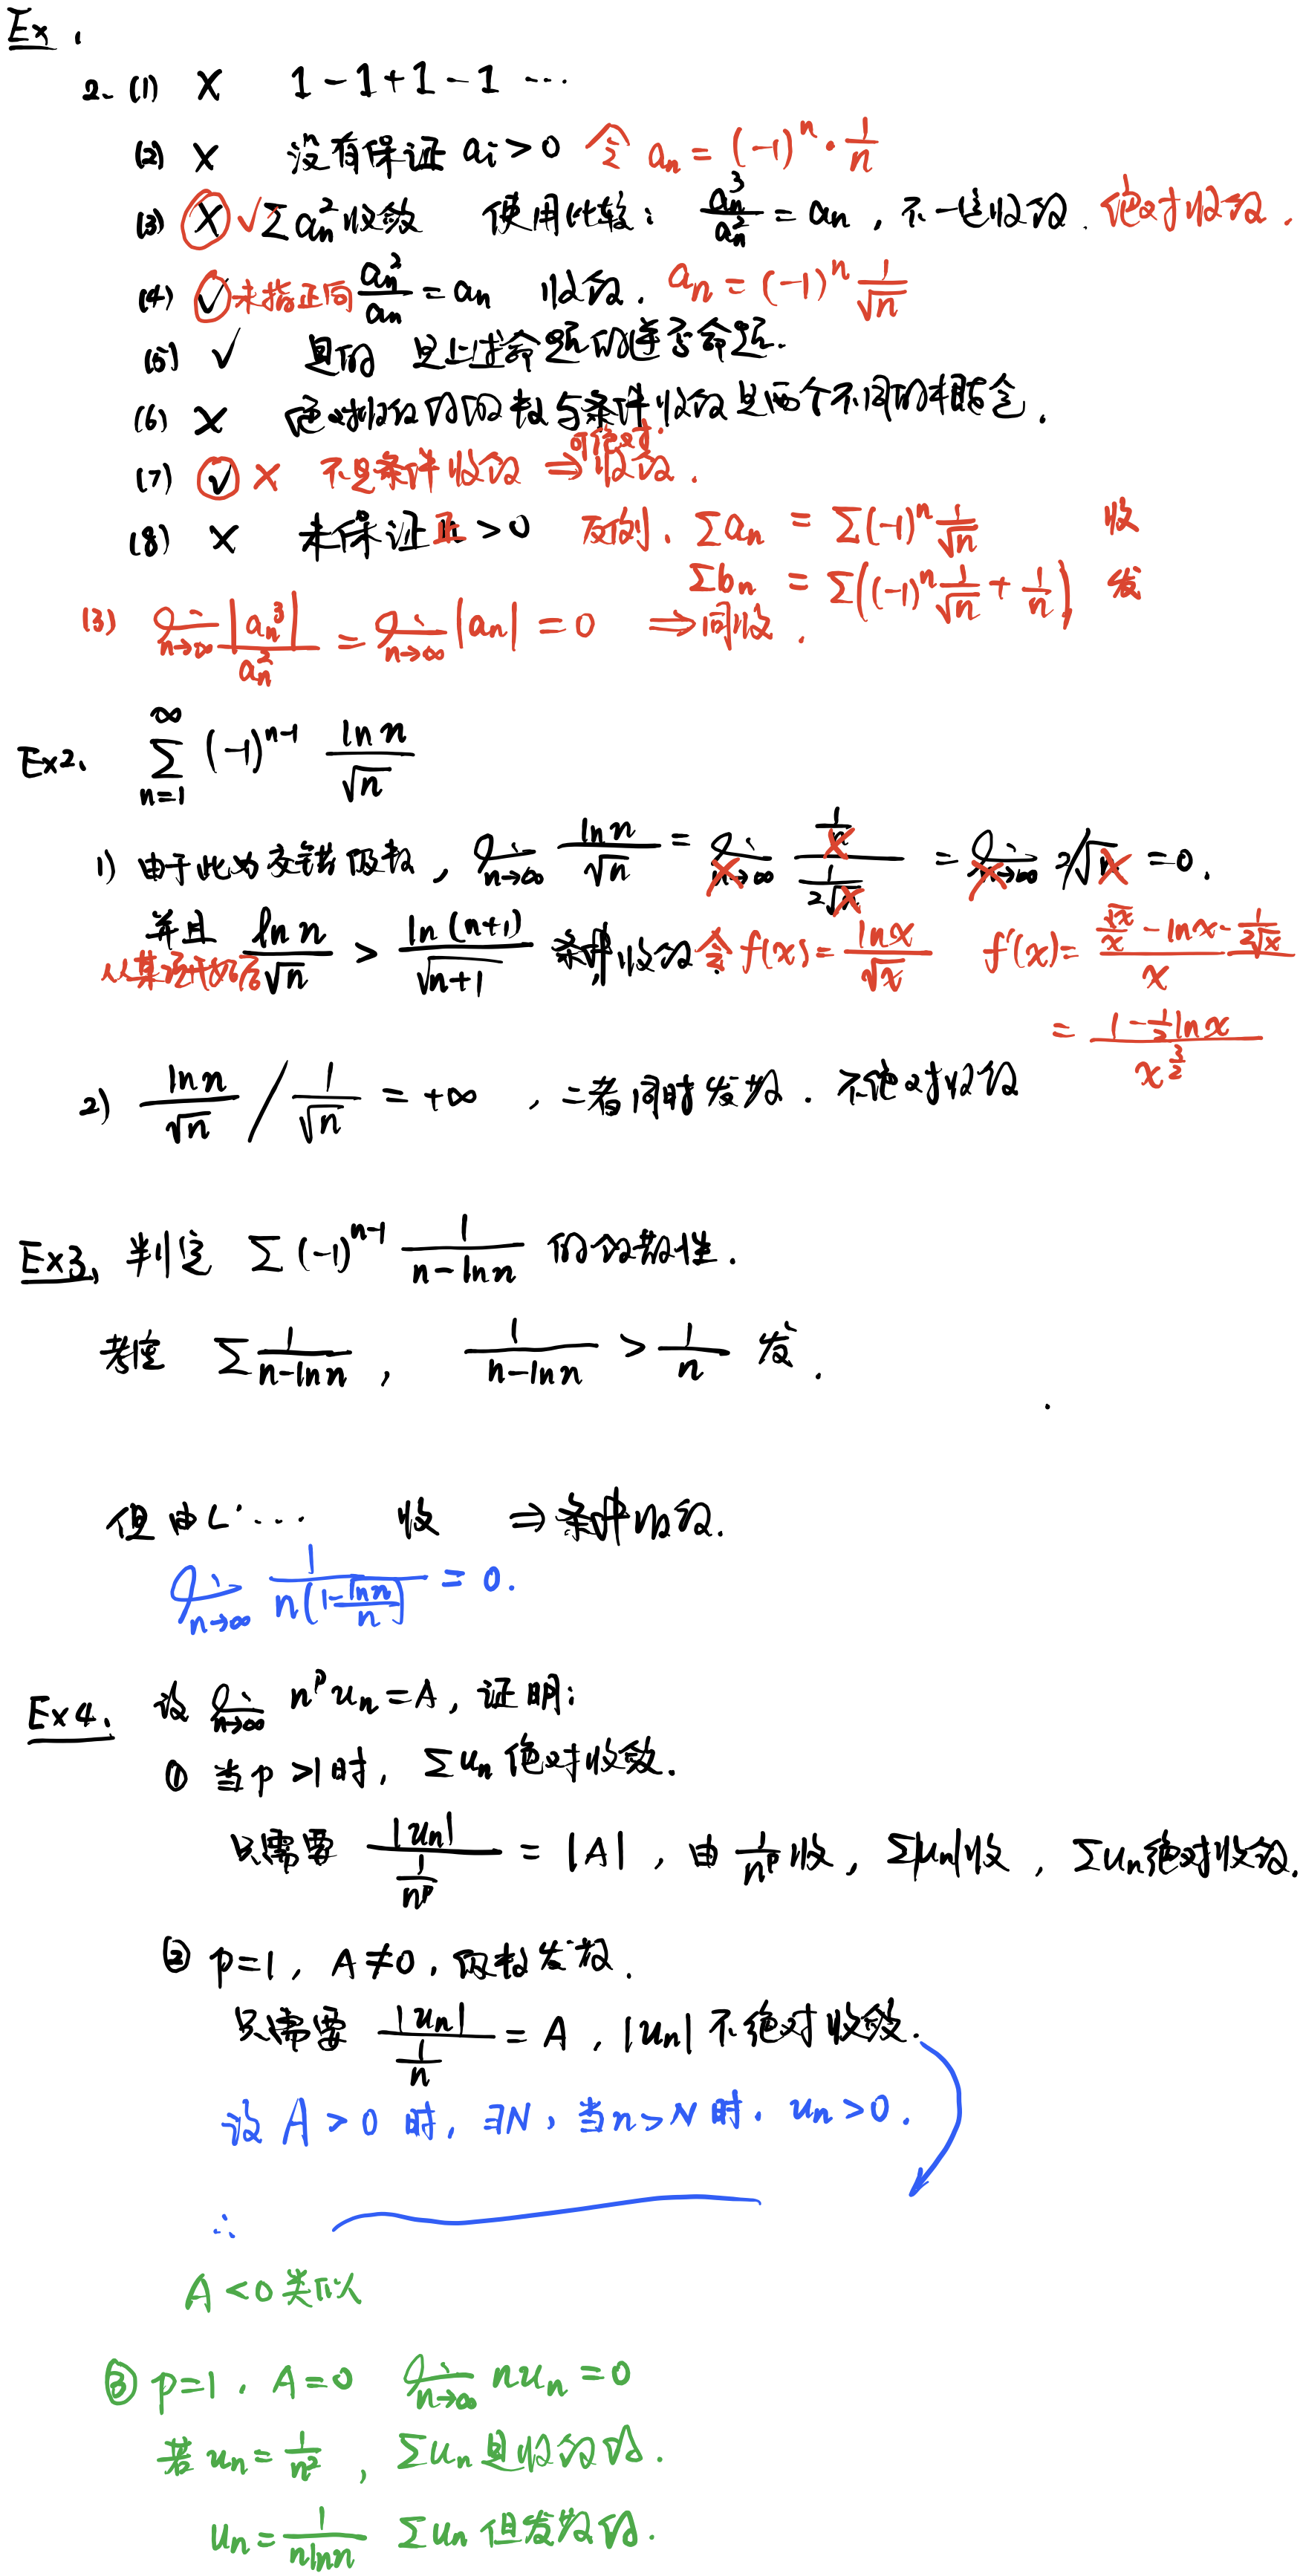 Ex 1
2. (1) × 1-1+1-1 ...
(2) × 没有保证 ai>0 令 an = (-1)^n · 1/n
(3) × √ Σan²收敛 使用比较: an³/an² = an, 不一定收敛. 绝对收敛.
(4) √ 未指正向 an²/an = an 收敛. an = (-1)^n 1/√n
(5) √ 是的 是上述命题的逆否命题.
(6) × 绝对收敛的级数与条件收敛是两个不同的概念.
(7) √ × 不是条件收敛 ⇒ 收敛. 可绝对.
(8) × 未保证正>0 反例. Σan = Σ(-1)^n 1/√n 收
Σbn = Σ((-1)^n 1/√n + 1/n) 发
(3) lim n→∞ |an³|/an² = lim n→∞ |an| = 0 ⇒ 同收.
Ex2. ∞ Σ n=1 (-1)^{n-1} ln n/√n
1) 由于此为交错级数, lim n→∞ ln n/√n = lim n→∞ (1/x)/(1/(2√x)) = lim n→∞ 2/√x = 0.
并且 ln n/√n > ln(n+1)/√(n+1) 条件收敛. 令 f(x) = ln x/√x f'(x) = (√x/x - ln x · 1/(2√x))/x
从某项开始后
= (1 - 1/2 ln x)/x^{3/2}
2) ln n/√n / 1/√n = +∞, 二者同时发散. 不绝对收敛
Ex3. 判定 Σ(-1)^{n-1} 1/(n-ln n) 的敛散性.
考虑 Σ 1/(n-ln n), 1/(n-ln n) > 1/n 发.
但由 L'... 收 ⇒ 条件收敛.
lim n→∞ 1/(n(1 - ln n/n)) = 0.
Ex4. 设 lim n→∞ n^p un = A, 证明:
① 当p>1时, Σun 绝对收敛.
只需要 |un|/(1/n^p) = |A|, 由 1/n^p 收, Σ|un|收, Σun绝对收敛.
② p=1, A≠0, 级数发散.
只需要 |un|/(1/n) = A, |un| 不绝对收敛.
设 A>0 时, ∃N, 当n>N时. un>0.
∴
A<0 类似
③ p=1. A=0 lim n→∞ nun = 0
若 un = 1/n², Σun 是收敛的.
un = 1/(n ln n) Σun 但发散的.